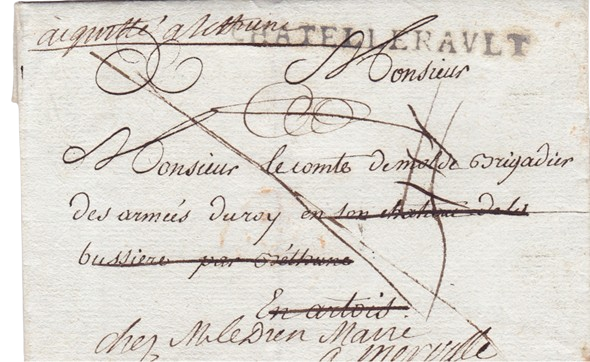 acquitté a bethune
CHATELLERAULT
Monsieur
Monsieur le comte de Brigadier
des armées du roy en son chateau de la
bussiere par Béthune
En artois
chez Mr le Maire
a merville